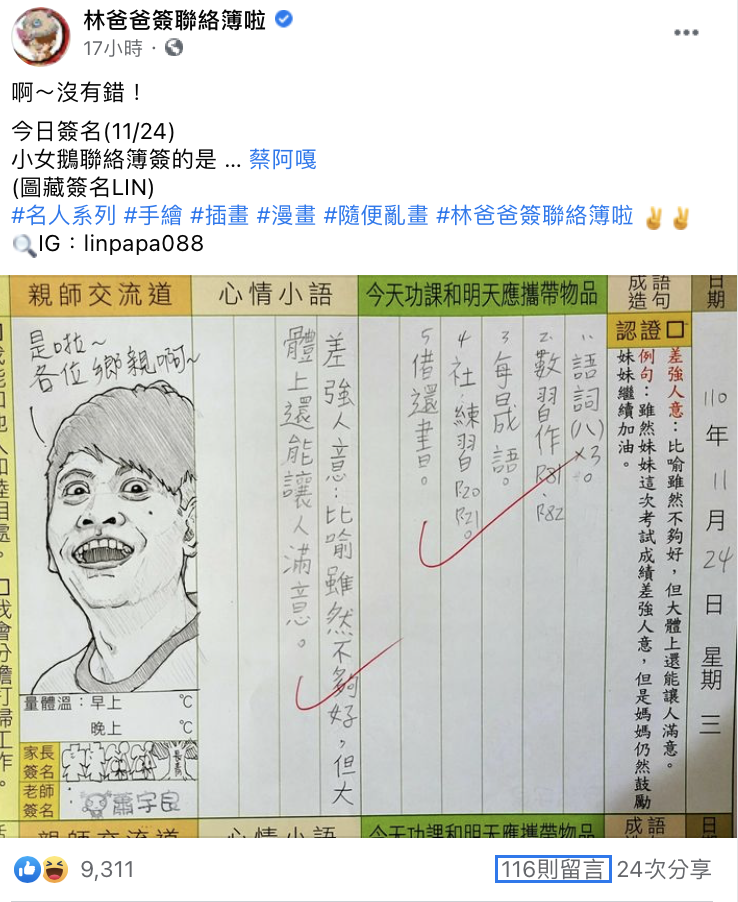 林爸爸簽聯絡簿啦
17小時
啊～沒有錯！
今日簽名(11/24)
小女鵝聯絡簿簽的是 ... 蔡阿嘎
(圖藏簽名LIN)
#名人系列 #手繪 #插畫 #漫畫 #隨便亂畫 #林爸爸簽聯絡簿啦
IG：linpapa088
日期
110年11月24日 星期三
成語造句
認證口
差強人意：比喻雖然不夠好，但大體上還能讓人滿意。
例句：雖然妹妹這次考試成績差強人意，但是媽媽仍然鼓勵
妹妹繼續加油。
今天功課和明天應攜帶物品
1.語詞(八)×3。
2.數習作P81、P82
3每日成語。
4社：練習P20 P21。
5借還書。
心情小語
差強人意：比喻雖然不夠好，但大
體上還能讓人滿意。
親師交流道
是啦～
各位鄉親啊～
量體溫：早上 ℃
晚上 ℃
家長簽名
老師簽名
蕭宇良
日
成語
今天功課和明天應攜帶物品
心情小語
親師交流道
9,311
116則留言 24次分享